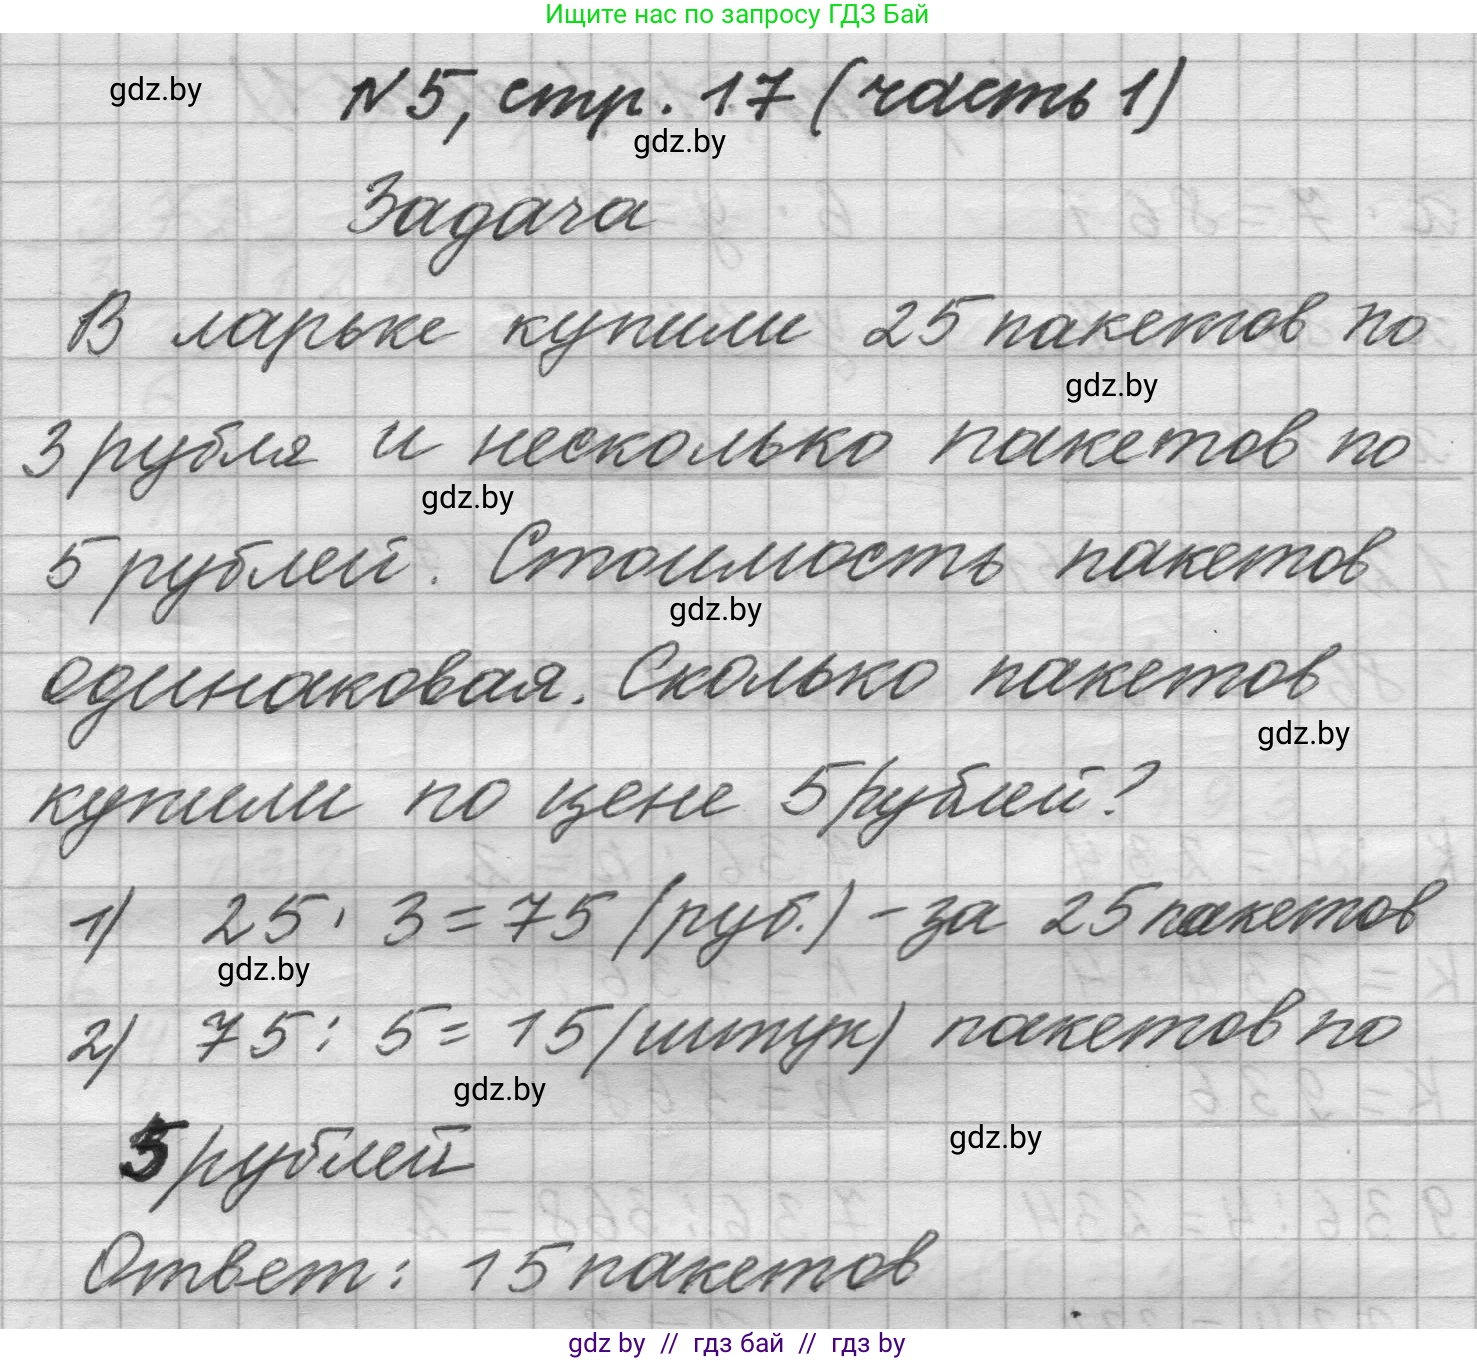 Ищите нас по запросу ГДЗ Бай
gdz.by
N5, стр. 17 (часть 1)
gdz.by
Задача
В ларьке купили 25 пакетов по
gdz.by
3 рубля и несколько пакетов по
gdz.by
5 рублей. Стоимость пакетов
gdz.by
одинаковая. Сколько пакетов
gdz.by
купили по цене 5 рублей?
1) 25 · 3 = 75 (руб.) - за 25 пакетов
gdz.by
2) 75 : 5 = 15 (штук) пакетов по
gdz.by
5 рублей
gdz.by
Ответ: 15 пакетов
gdz by // гдз бай // гдз by